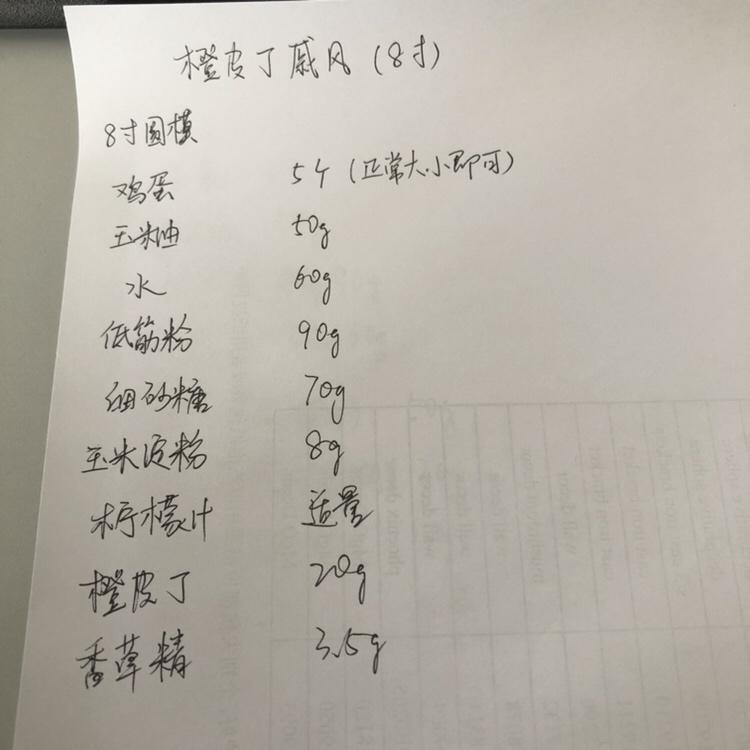 橙皮丁戚风(8寸)
8寸圆模
鸡蛋 5个(正常大小即可)
玉米油 50g
水 60g
低筋粉 90g
细砂糖 70g
玉米淀粉 8g
柠檬汁 适量
橙皮丁 20g
香草精 3.5g